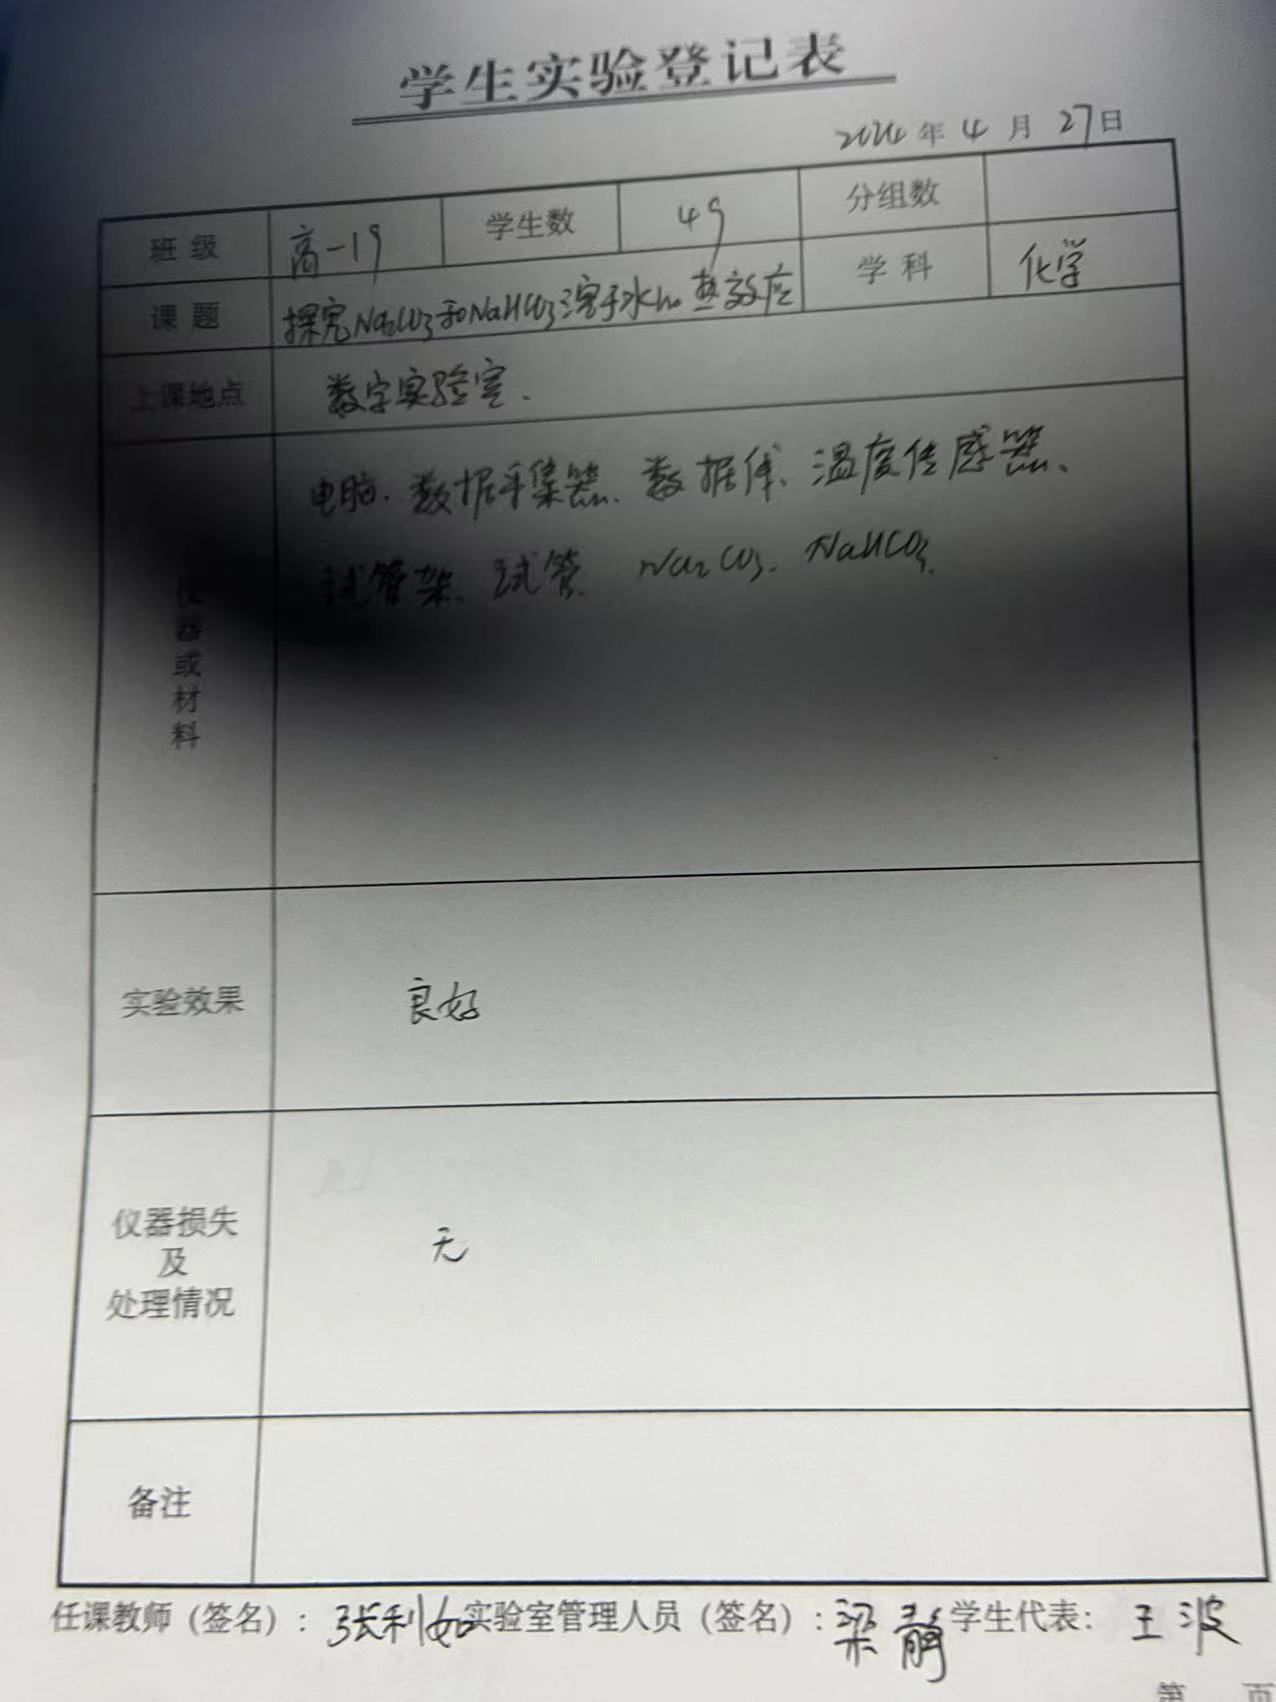 学生实验登记表
2024年4月27日
班级 高一19 学生数 49 分组数
课题 探究Na2CO3和NaHCO3溶于水的热效应 学科 化学
上课地点 数字实验室.
仪器或材料 电脑、数据采集器、数据线、温度传感器、
试管架、试管、Na2CO3、NaHCO3.
实验效果 良好
仪器损失
及
处理情况 无
备注
任课教师（签名）：张利如 实验室管理人员（签名）：梁静 学生代表：王波
第 页